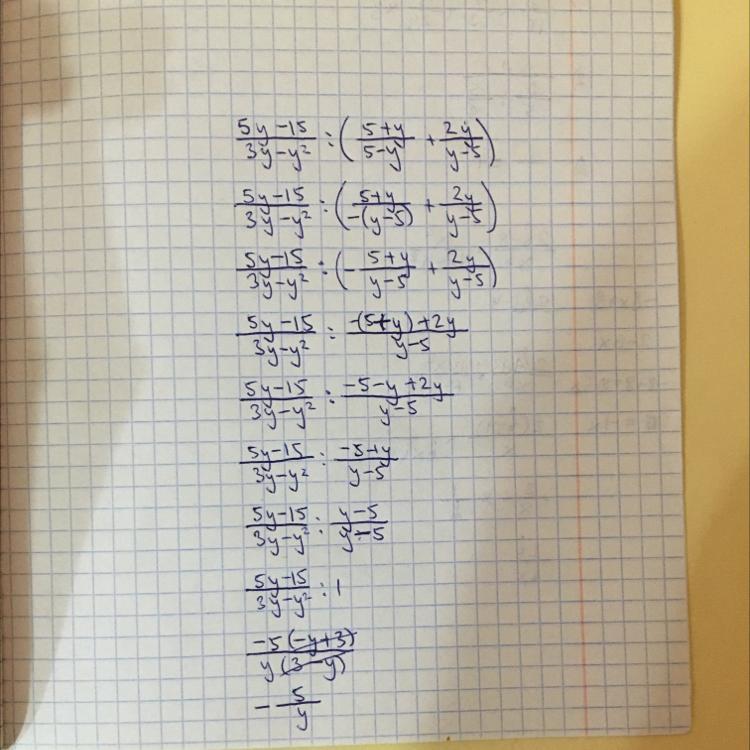 (5y-15)/(3y-y²) : ((5+y)/(5-y) + 2y/(y-5))
(5y-15)/(3y-y²) : ((5+y)/(-(y-5)) + 2y/(y-5))
(5y-15)/(3y-y²) : (-(5+y)/(y-5) + 2y/(y-5))
(5y-15)/(3y-y²) : (-(5+y)+2y)/(y-5)
(5y-15)/(3y-y²) : (-5-y+2y)/(y-5)
(5y-15)/(3y-y²) : (-5+y)/(y-5)
(5y-15)/(3y-y²) : (y-5)/(y-5)
(5y-15)/(3y-y²) : 1
(-5(-y+3))/(y(3-y))
-5/y